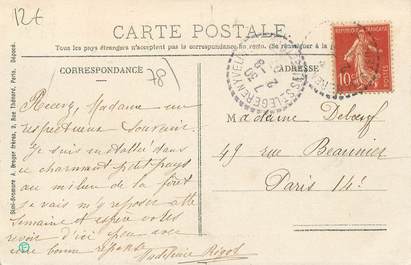 12€
CARTE POSTALE
Tous les pays étrangers n'acceptent pas la correspondance au recto. (Se renseigner à la
CORRESPONDANCE
78
ADRESSE
REPUBLIQUE FRANÇAISE
10
POSTES
ST-LEGER-EN-YVELINES
Recevez, Madame un
respectueux souvenir.
Je suis installée dans ce
charmant petit pays
au milieu de la forêt
je vais m'y reposer cette
semaine et espère vous
revoir d'ici peu avec
votre bonne
Madeleine Rigot
Madame Deboeuf
49 rue Beaunier
Paris 14e
Semi-Bromure A. Breger Frères, 9, Rue Thénard, Paris. Déposé.